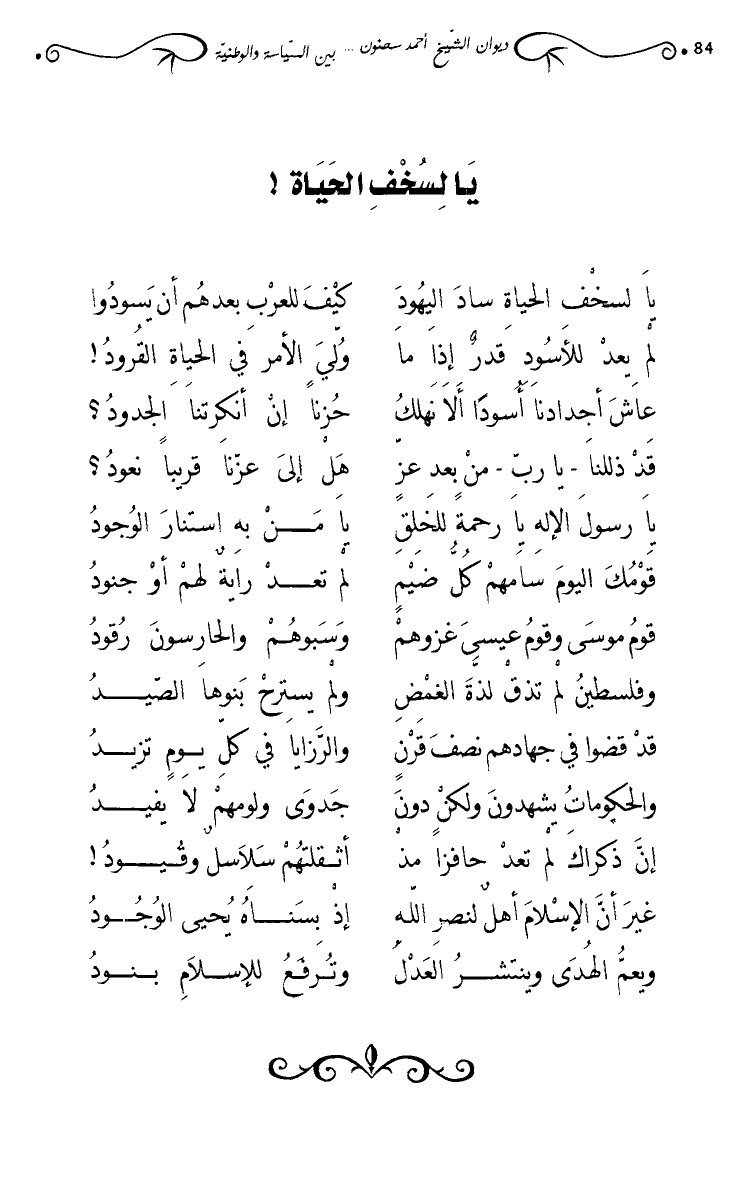 84 • ديوان الشّيخ أحمد سحنون ... بين السّياسة والوطنيّة •
يَا لِسُخْفِ الحَيَاة !
يا لسخْفِ الحياةِ سادَ اليهُودَ كيْفَ للعرْبِ بعدهُم أن يَسودُوا
لمْ يعدْ للأسُودِ قدرٌ إذَا ما وُلِّيَ الأمر في الحياةِ القرُودُ!
عاشَ أجدادنَا أُسودًا أَلَا نهلكُ حُزناً إنْ أنكرتنَا الجدودُ؟
قدْ ذللنا - يا ربّ - منْ بعد عزٍّ هَلْ إلىَ عزّنا قريباً نعودُ؟
يا رسول الإلهِ يا رحمةً للخلقِ يا مَـنْ به استنارَ الوُجودُ
قوْمُكَ اليومَ سامهمْ كلُّ ضيْمٍ لمْ تعـدْ رايةٌ لهمْ أوْ جنودُ
قومُ موسَى وقومُ عيسىَ غزوهمْ وَسَبوهُـمْ والحارِسونَ رُقودُ
وفلسطينُ لمْ تذقْ لذّةَ الغمْضِ ولمْ يسترحْ بَنوها الصّيـدُ
قدْ قضوا في جهادهم نصفَ قرْنٍ والرَّزايَا في كلِّ يـومٍ تزيـدُ
والحكوماتُ يشهدونَ ولكنْ دونَ جَدوَى ولومهمْ لا يفيـدُ
إنَّ ذكراكَ لمْ تعدْ حافزا مذْ أثـقلتهُمْ سَلَاسلٌ وقُيـودُ!
غيرَ أنَّ الإسْلامَ أهلٌ لنصرِ اللّهِ إذْ بِسَنـاهُ يُحيى الوُجُـودُ
ويعمُّ الهُدَى وينتشـرُ العَدْلُ وتُـرفَعُ للإسـلَامِ بـنـودُ